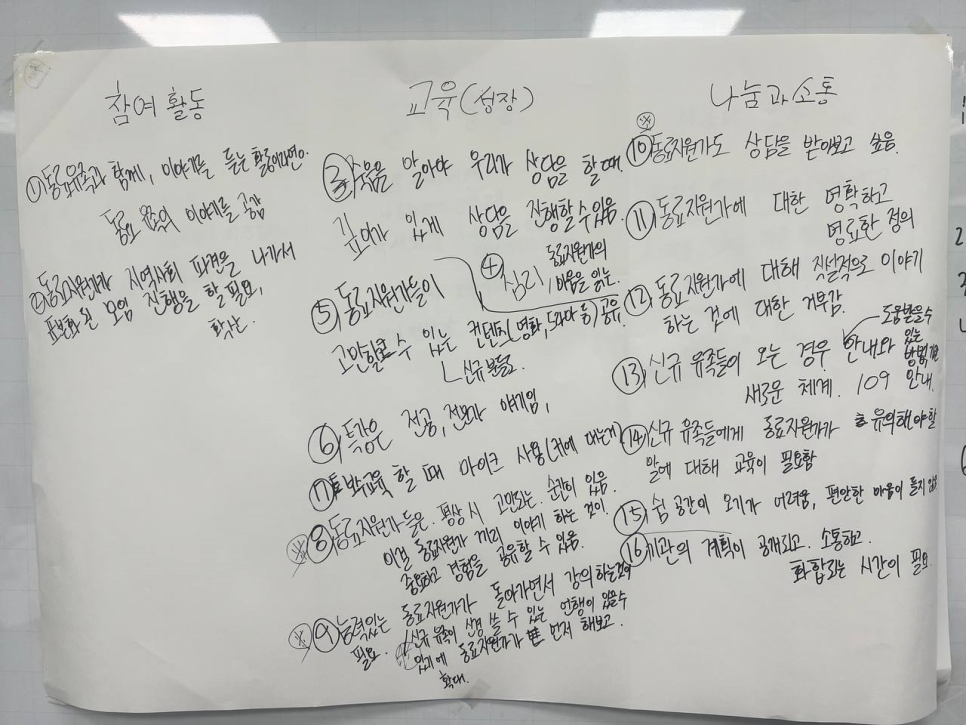 참여 활동
① 동료유족과 함께, 이야기를 듣는 활동이
동료 유족의 이야기를 공감
② 동료지원가가 지역사회 파견을 나가서
표본화 된 모임 진행을 할 필요,
확산.
교육(성장)
알아야 우리가 상담을 할 때
깊이가 있게 상담을 진행할 수 있음
⊕ 심리, 동료지원가의
마음을 읽는.
⑤ 동료지원가들이
고민할 수 있는 컨텐츠(영화, 드라마 등) 공유.
ㄴ 신규분들.
⑥ 특강은 전공, 전문가 얘기임,
⑦ 교육 할 때 마이크 사용(귀에 대는거)
※⑧ 동료지원가들은 평상시 고민되는 순간이 있음.
이걸 동료지원가 끼리 이야기 하는 것이
중요하고 경험을 공유할 수 있음.
※⑨ 능력있는 동료지원가가 돌아가면서 강의하는
필요. 신규 유족이 신경 쓸 수 있는 언행이 있을수
있기에 동료지원가가 먼저 해보고.
확대.
나눔과 소통
※
⑩ 동료지원가도 상담을 받아보고 싶음.
⑪ 동료지원가에 대한 명확하고
명료한 정의
⑫ 동료지원가에 대해 직설적으로 이야기
하는 것에 대한 거부감.
도움받을수
있는
⑬ 신규 유족들이 오는 경우 안내와
새로운 체계. 109 안내.
⑭ 신규 유족들에게 동료지원가가 유의해야할
말에 대해 교육이 필요함
⑮ 쉼 공간이 오기가 어려움, 편안한 마음이 들지 않음
⑯ 기관의 계획이 공개되고. 소통하고.
화합되는 시간이 필요.